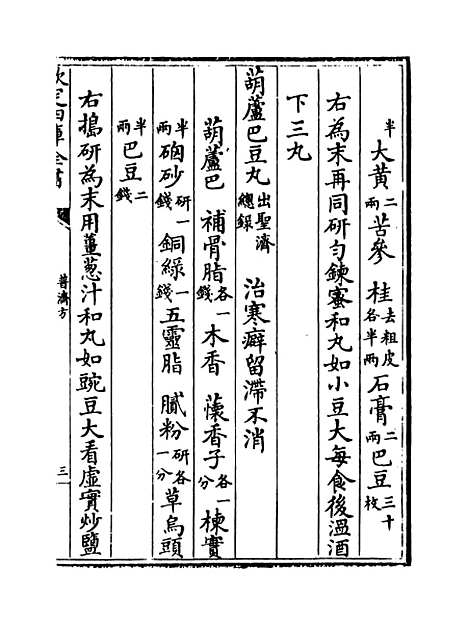 半大黄二兩苦參 桂去粗皮各半兩石膏二兩巴豆三十枚
右為末再同研勻鍊蜜和丸如小豆大每食後温酒
下三丸
葫蘆巴豆丸出聖濟總錄 治寒癖留滯不消
葫蘆巴 補骨脂各一錢木香 蘹香子各一分楝實
半兩硇砂研一錢銅綠一錢五靈脂 膩粉研各一分草烏頭
半兩巴豆二錢
右搗研為末用薑葱汁和丸如豌豆大看虛實炒鹽
欽定四庫全書
普濟方